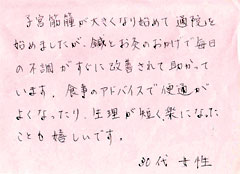 子宮筋腫が大きくなり始めて通院を
始めましたが、鍼とお灸のおかげで毎日
の不調がすぐに改善されて助かって
います。食事のアドバイスで便通が
よくなったり、生理が短く、楽になった
ことも嬉しいです。
30代 女性